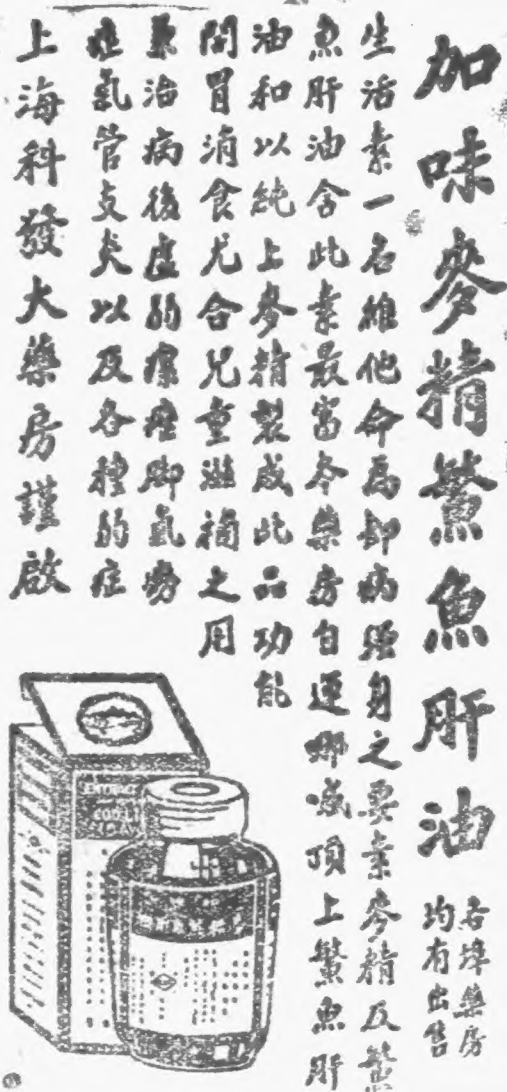 加味麥精鰵魚肝油
各埠藥房
均有出售
生活素一名維他命爲卻病强身之要素麥精及鰵
魚肝油含此素最富本藥房自運哪威頂上鰵魚肝
油和以純上麥精製成此品功能
開胃消食尤合兒童滋補之用
兼治病後虛弱瘰癧脚氣癆
症氣管支炎以及各種弱症
上海科發大藥房謹啟
EXTRACT